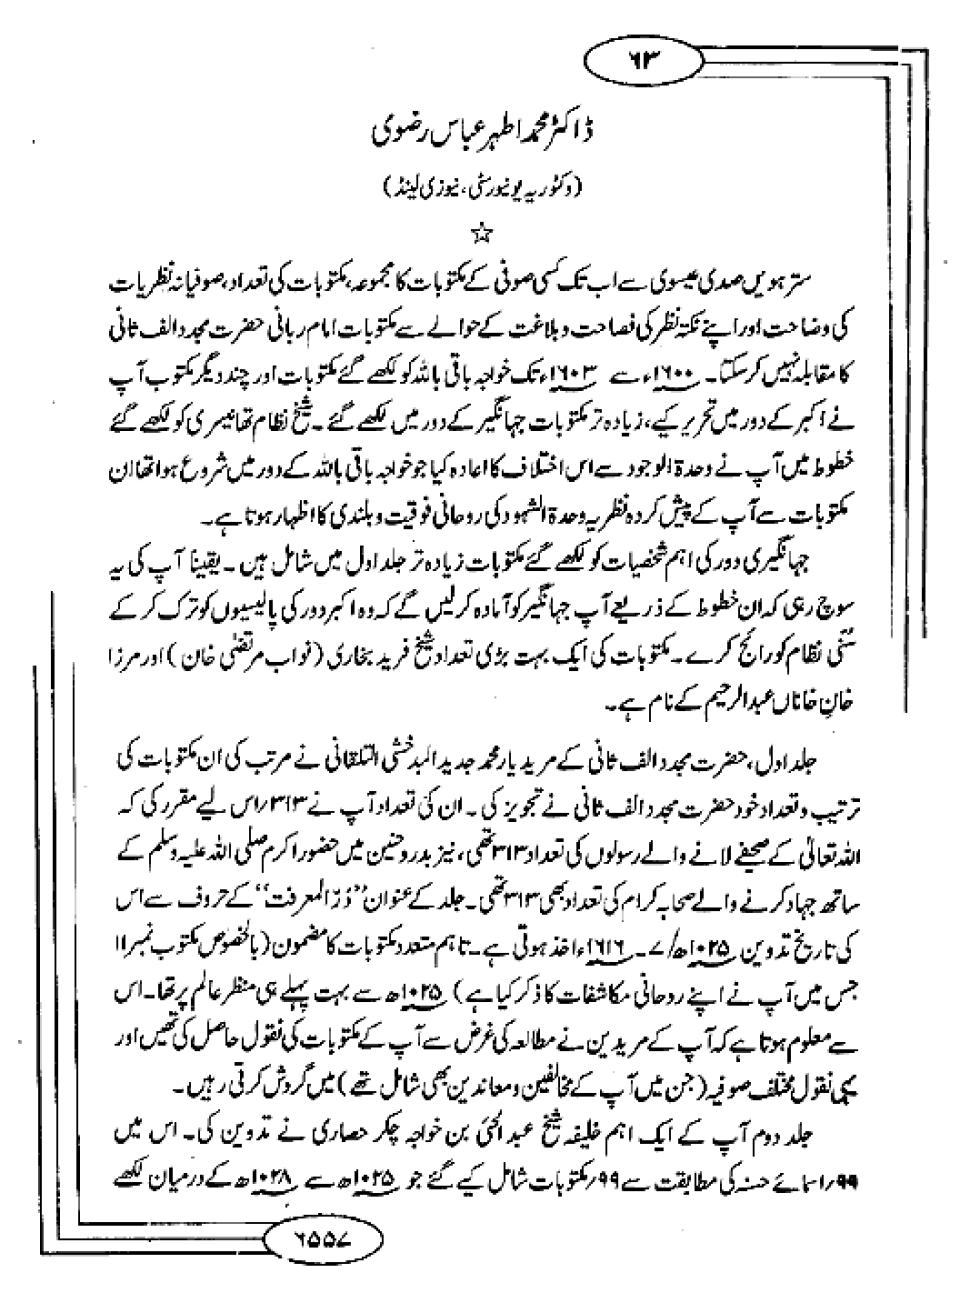 ۶۳
ڈاکٹر محمد اطہر عباس رضوی
(وکٹوریہ یونیورسٹی، نیوزی لینڈ)
☆
سترھویں صدی عیسوی سے اب تک کسی صوفی کے مکتوبات کا مجموعہ، مکتوبات کی تعداد، صوفیانہ نظریات
کی وضاحت اور اپنے نکتۂ نظر کی فصاحت و بلاغت کے حوالے سے مکتوبات امام ربانی حضرت مجدد الف ثانی
کا مقابلہ نہیں کر سکتا۔ ۱۶۰۰ء سے ۱۶۰۳ء تک خواجہ باقی باللہ کو لکھے گئے مکتوبات اور چند دیگر مکتوب آپ
نے اکبر کے دور میں تحریر کیے، زیادہ تر مکتوبات جہانگیر کے دور میں لکھے گئے۔ شیخ نظام تھانیسری کو لکھے گئے
خطوط میں آپ نے وحدۃ الوجود سے اس اختلاف کا اعادہ کیا جو خواجہ باقی باللہ کے دور میں شروع ہوا تھا ان
مکتوبات سے آپ کے پیش کردہ نظریہ وحدۃ الشہود کی روحانی فوقیت و بلندی کا اظہار ہوتا ہے۔
جہانگیری دور کی اہم شخصیات کو لکھے گئے مکتوبات زیادہ تر جلد اول میں شامل ہیں۔ یقیناً آپ کی یہ
سوچ رہی کہ ان خطوط کے ذریعے آپ جہانگیر کو آمادہ کر لیں گے کہ وہ اکبر دور کی پالیسیوں کو ترک کر کے
سُنّی نظام کو رائج کرے۔ مکتوبات کی ایک بہت بڑی تعداد شیخ فرید بخاری (نواب مرتضیٰ خان) اور مرزا
خانِ خاناں عبدالرحیم کے نام ہے۔
جلد اول، حضرت مجدد الف ثانی کے مرید یار محمد جدید البدخشی التلقانی نے مرتب کی ان مکتوبات کی
ترتیب و تعداد خود حضرت مجدد الف ثانی نے تجویز کی۔ ان کی تعداد آپ نے ۳۱۳؍اس لیے مقرر کی کہ
اللہ تعالیٰ کے صحیفے لانے والے رسولوں کی تعداد ۳۱۳ تھی، نیز بدر و حنین میں حضور اکرم صلی اللہ علیہ وسلم کے
ساتھ جہاد کرنے والے صحابہ کرام کی تعداد بھی ۳۱۳ تھی۔ جلد کے عنوان ”دُرّ المعرفت“ کے حروف سے اس
کی تاریخ تدوین ۱۰۲۵ھ/۷۔۱۶۱۶ء اخذ ہوتی ہے۔ تاہم متعدد مکتوبات کا مضمون (بالخصوص مکتوب نمبر ۱۱
جس میں آپ نے اپنے روحانی مکاشفات کا ذکر کیا ہے) ۱۰۲۵ھ سے بہت پہلے ہی منظر عالم پر تھا۔ اس
سے معلوم ہوتا ہے کہ آپ کے مریدین نے مطالعہ کی غرض سے آپ کے مکتوبات کی نقول حاصل کی تھیں اور
یہی نقول مختلف صوفیہ (جن میں آپ کے مخالفین و معاندین بھی شامل تھے) میں گردش کرتی رہیں۔
جلد دوم آپ کے ایک اہم خلیفہ شیخ عبدالحئ بن خواجہ چکر حصاری نے تدوین کی۔ اس میں
۹۹؍اسمائے حسنہ کی مطابقت سے ۹۹؍مکتوبات شامل کیے گئے جو ۱۰۲۵ھ سے ۱۰۲۸ھ کے درمیان لکھے
۶۵۵۷